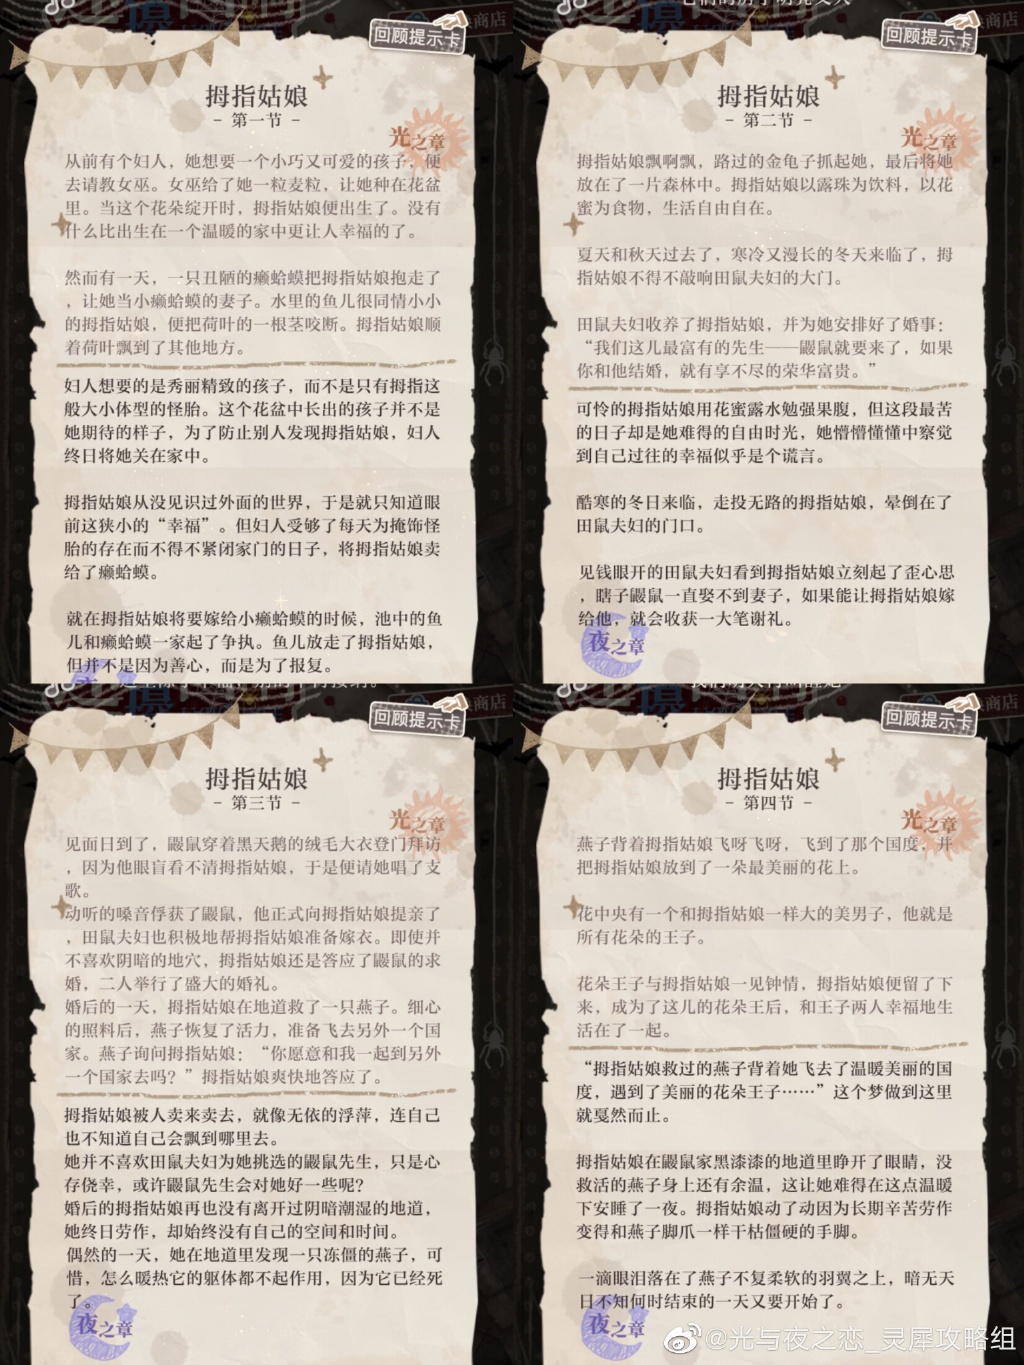 商店
回顾提示卡
拇指姑娘
- 第一节 -
光之章
从前有个妇人，她想要一个小巧又可爱的孩子，便
去请教女巫。女巫给了她一粒麦粒，让她种在花盆
里。当这个花朵绽开时，拇指姑娘便出生了。没有
什么比出生在一个温暖的家中更让人幸福的了。
然而有一天，一只丑陋的癞蛤蟆把拇指姑娘抱走了
，让她当小癞蛤蟆的妻子。水里的鱼儿很同情小小
的拇指姑娘，便把荷叶的一根茎咬断。拇指姑娘顺
着荷叶飘到了其他地方。
妇人想要的是秀丽精致的孩子，而不是只有拇指这
般大小体型的怪胎。这个花盆中长出的孩子并不是
她期待的样子，为了防止别人发现拇指姑娘，妇人
终日将她关在家中。
拇指姑娘从没见识过外面的世界，于是就只知道眼
前这狭小的“幸福”。但妇人受够了每天为掩饰怪
胎的存在而不得不紧闭家门的日子，将拇指姑娘卖
给了癞蛤蟆。
就在拇指姑娘将要嫁给小癞蛤蟆的时候，池中的鱼
儿和癞蛤蟆一家起了争执。鱼儿放走了拇指姑娘，
但并不是因为善心，而是为了报复。
商店
回顾提示卡
拇指姑娘
- 第二节 -
光之章
拇指姑娘飘啊飘，路过的金龟子抓起她，最后将她
放在了一片森林中。拇指姑娘以露珠为饮料，以花
蜜为食物，生活自由自在。
夏天和秋天过去了，寒冷又漫长的冬天来临了，拇
指姑娘不得不敲响田鼠夫妇的大门。
田鼠夫妇收养了拇指姑娘，并为她安排好了婚事：
“我们这儿最富有的先生——鼹鼠就要来了，如果
你和他结婚，就有享不尽的荣华富贵。”
可怜的拇指姑娘用花蜜露水勉强果腹，但这段最苦
的日子却是她难得的自由时光，她懵懵懂懂中察觉
到自己过往的幸福似乎是个谎言。
酷寒的冬日来临，走投无路的拇指姑娘，晕倒在了
田鼠夫妇的门口。
见钱眼开的田鼠夫妇看到拇指姑娘立刻起了歪心思
，瞎子鼹鼠一直娶不到妻子，如果能让拇指姑娘嫁
给他，就会收获一大笔谢礼。
夜之章
商店
回顾提示卡
拇指姑娘
- 第三节 -
光之章
见面日到了，鼹鼠穿着黑天鹅的绒毛大衣登门拜访
，因为他眼盲看不清拇指姑娘，于是便请她唱了支
歌。
动听的嗓音俘获了鼹鼠，他正式向拇指姑娘提亲了
，田鼠夫妇也积极地帮拇指姑娘准备嫁衣。即使并
不喜欢阴暗的地穴，拇指姑娘还是答应了鼹鼠的求
婚，二人举行了盛大的婚礼。
婚后的一天，拇指姑娘在地道救了一只燕子。细心
的照料后，燕子恢复了活力，准备飞去另外一个国
家。燕子询问拇指姑娘：“你愿意和我一起到另外
一个国家去吗？”拇指姑娘爽快地答应了。
拇指姑娘被人卖来卖去，就像无依的浮萍，连自己
也不知道自己会飘到哪里去。
她并不喜欢田鼠夫妇为她挑选的鼹鼠先生，只是心
存侥幸，或许鼹鼠先生会对她好一些呢？
婚后的拇指姑娘再也没有离开过阴暗潮湿的地道，
她终日劳作，却始终没有自己的空间和时间。
偶然的一天，她在地道里发现一只冻僵的燕子，可
惜，怎么暖热它的躯体都不起作用，因为它已经死
了。
夜之章
商店
回顾提示卡
拇指姑娘
- 第四节 -
光之章
燕子背着拇指姑娘飞呀飞呀，飞到了那个国度，并
把拇指姑娘放到了一朵最美丽的花上。
花中央有一个和拇指姑娘一样大的美男子，他就是
所有花朵的王子。
花朵王子与拇指姑娘一见钟情，拇指姑娘便留了下
来，成为了这儿的花朵王后，和王子两人幸福地生
活在了一起。
“拇指姑娘救过的燕子背着她飞去了温暖美丽的国
度，遇到了美丽的花朵王子……”这个梦做到这里
就戛然而止。
拇指姑娘在鼹鼠家黑漆漆的地道里睁开了眼睛，没
救活的燕子身上还有余温，这让她难得在这点温暖
下安睡了一夜。拇指姑娘动了动因为长期辛苦劳作
变得和燕子脚爪一样干枯僵硬的手脚。
一滴眼泪落在了燕子不复柔软的羽翼之上，暗无天
日不知何时结束的一天又要开始了。
夜之章
@光与夜之恋_灵犀攻略组